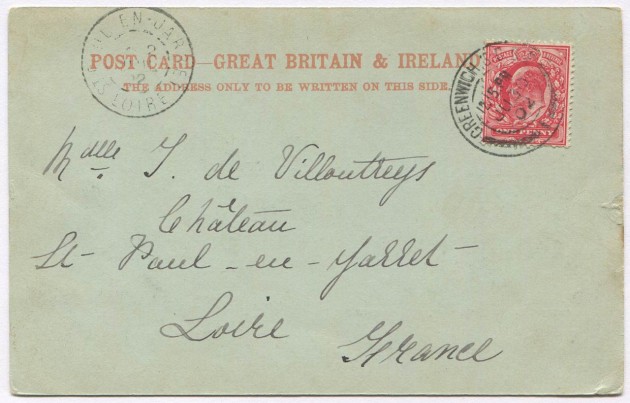 POST CARD—GREAT BRITAIN & IRELAND
THE ADDRESS ONLY TO BE WRITTEN ON THIS SIDE.
EN-JAR
LOIRE
GREENWICH
ONE PENNY
Mdlle J. de Villoutreys
Château
St Paul-en-Jarret
Loire
France